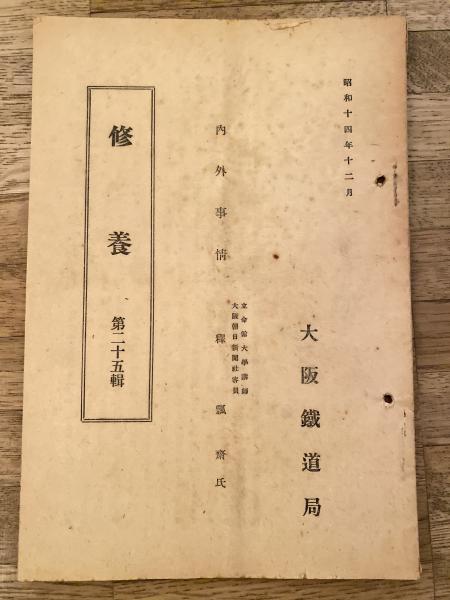 昭和十四年十二月
大阪鐵道局
內外事情
立命館大學講師
大阪朝日新聞社客員
釋瓢齋氏
修養 第二十五輯